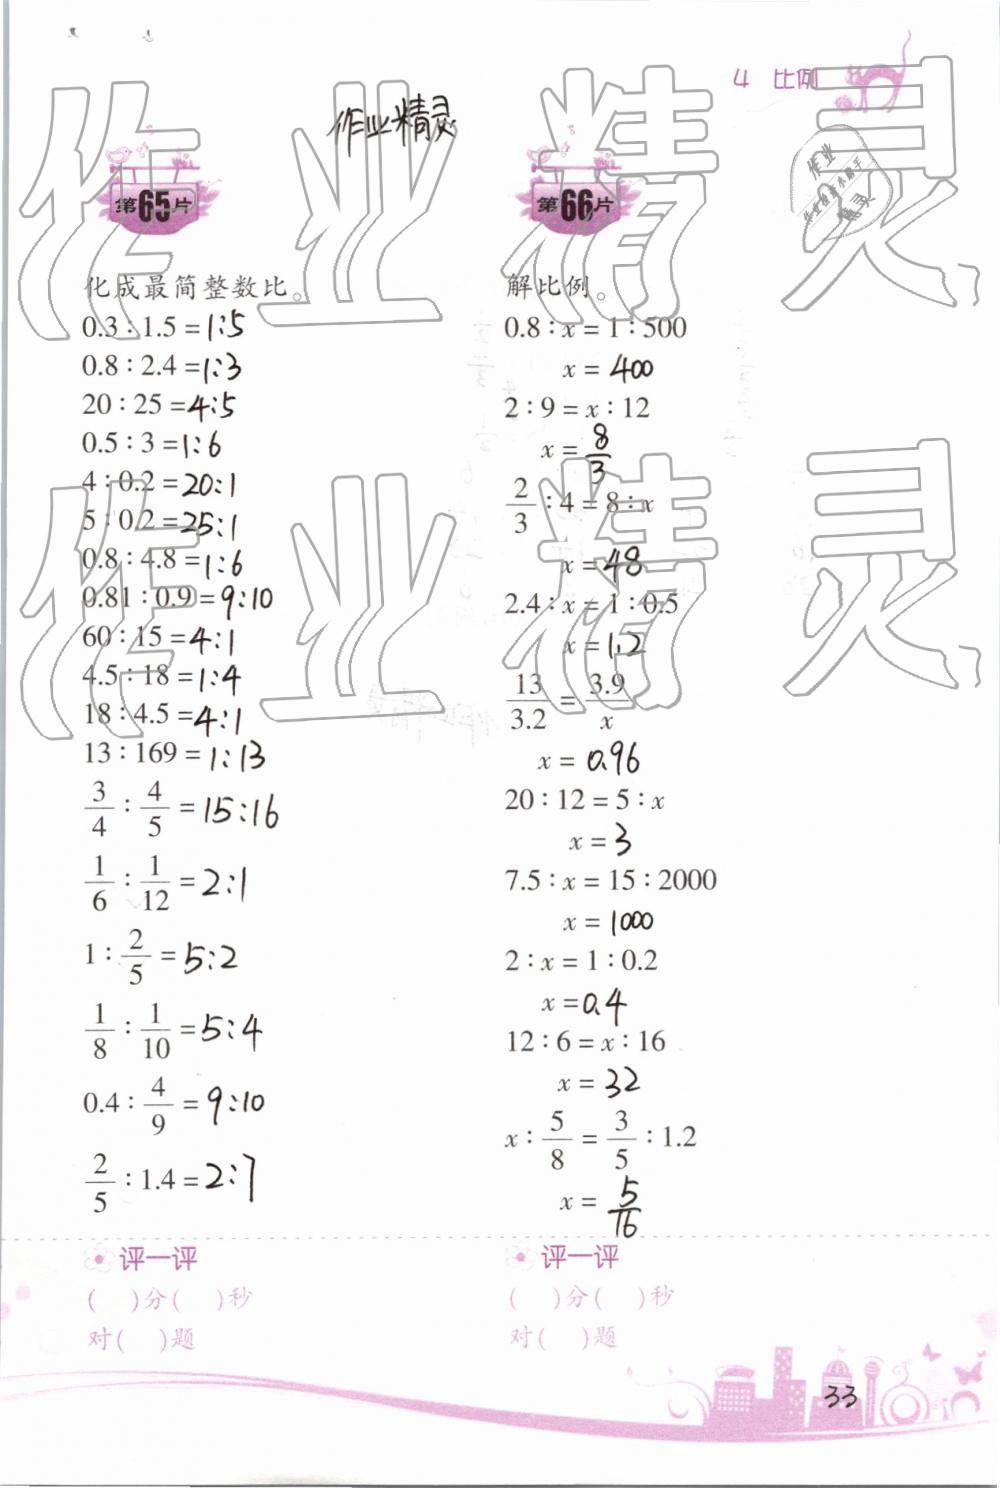 4 比例
作业精灵
作业精灵
第65片
化成最简整数比。
0.3 : 1.5 = 1:5
0.8 : 2.4 = 1:3
20 : 25 = 4:5
0.5 : 3 = 1:6
4 : 0.2 = 20:1
5 : 0.2 = 25:1
0.8 : 4.8 = 1:6
0.81 : 0.9 = 9:10
60 : 15 = 4:1
4.5 : 18 = 1:4
18 : 4.5 = 4:1
13 : 169 = 1:13
3/4 : 4/5 = 15:16
1/6 : 1/12 = 2:1
1 : 2/5 = 5:2
1/8 : 1/10 = 5:4
0.4 : 4/9 = 9:10
2/5 : 1.4 = 2:7
评一评
( )分( )秒
对( )题
第66片
解比例。
0.8 : x = 1 : 500
x = 400
2 : 9 = x : 12
x = 8/3
2/3 : 4 = 8 : x
x = 48
2.4 : x = 1 : 0.5
x = 1.2
13/3.2 = 3.9/x
x = 0.96
20 : 12 = 5 : x
x = 3
7.5 : x = 15 : 2000
x = 1000
2 : x = 1 : 0.2
x = 0.4
12 : 6 = x : 16
x = 32
x : 5/8 = 3/5 : 1.2
x = 5/16
评一评
( )分( )秒
对( )题
33
作业精灵